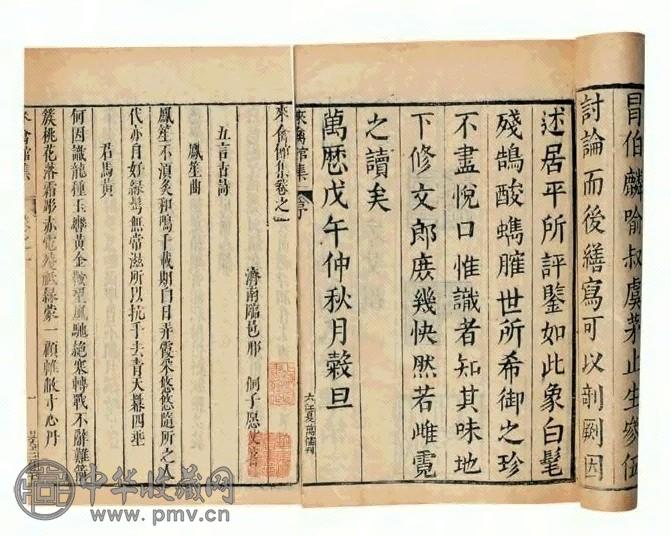 冒伯麟喻叔虞茅止生參伍
討論而後繕寫可以剞劂因
述居平所評鑒如此象白髦
殘鵠酸臇臛世所希御之珍
不盡悅口惟識者知其味地
下修文郎庶幾快然若雌霓
之讀矣
萬曆戊午仲秋月穀旦
來禽館集 序
來禽館集卷之一
濟南臨邑邢 侗子愿父著
五言古詩
鳳笙曲
鳳笙不須炙和鳴千載期白日弄霞采悠悠隨所之人
代亦自好綠鬢無常滋所以抗手去青天幕四垂
君馬黃
何因識龍種玉轡黃金鞍望風馳絕塞轉戰不辭難
簇桃花落霜彫赤電殘祗緣蒙一顧帷敝寸心丹
來禽館集
卷之一
一
中华收藏网
www.pmv.cn